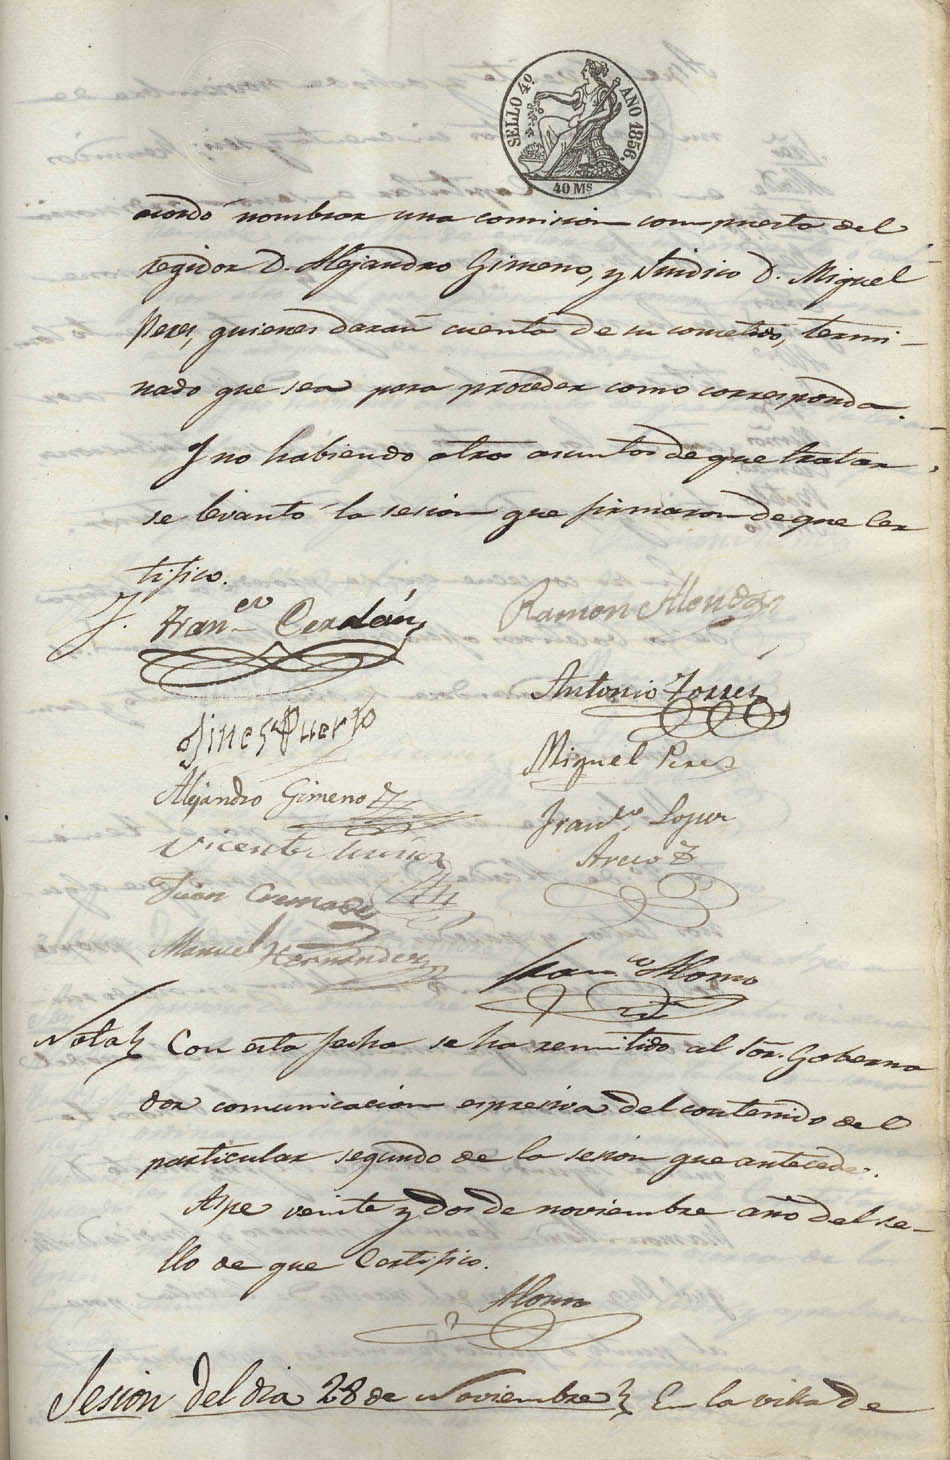 SELLO 4º AÑO 1856.
40 Ms
acordó nombrar una comision compuesta del
regidor D. Alejandro Gimeno, y Sindico D. Miguel
Perez, quienes darañ cuenta de su cometido, termi-
nado que sea para proceder como corresponda.
Y no habiendo otros asuntos de que tratar,
se levantó la sesion que firmaron de que Cer
tifico.
Fran.co Cerdán
Ramon Mendez
Antonio Torres
Gines Puerto
Miguel Perez
Alejandro Gimeno
Franco Lopez
Vicente
Juan Cremades
Manuel Hernandez
Franco Alonso
Nota Con esta fecha se ha remitido al Sor. Goberna
dor comunicacion espresiva del contenido del
particular segundo de la sesion que antecede.
Aspe veinte y dos de noviembre año del se-
llo de que Certifico.
Alonso
Sesion del dia 28 de Noviembre En la villa de